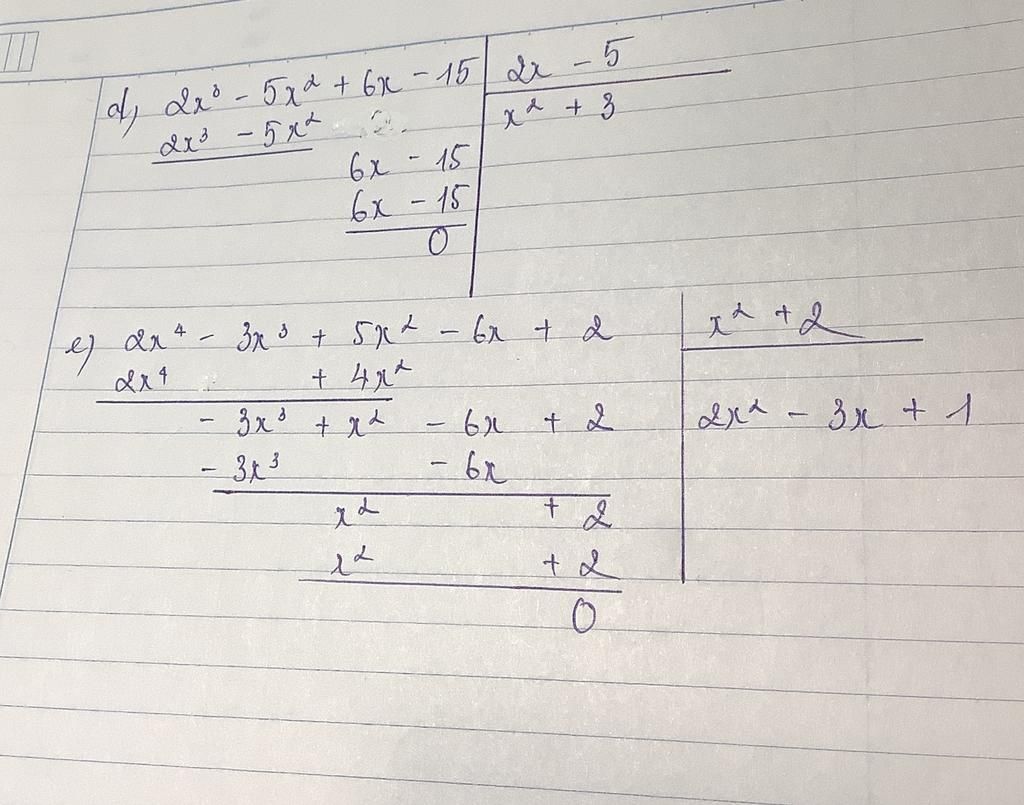 d) 2x³ - 5x² + 6x - 15 | 2x - 5
2x³ - 5x² | x² + 3
6x - 15
6x - 15
0
e) 2x⁴ - 3x³ + 5x² - 6x + 2 | x² + 2
2x⁴ + 4x²
- 3x³ + x² - 6x + 2 | 2x² - 3x + 1
- 3x³ - 6x
x² + 2
x² + 2
0